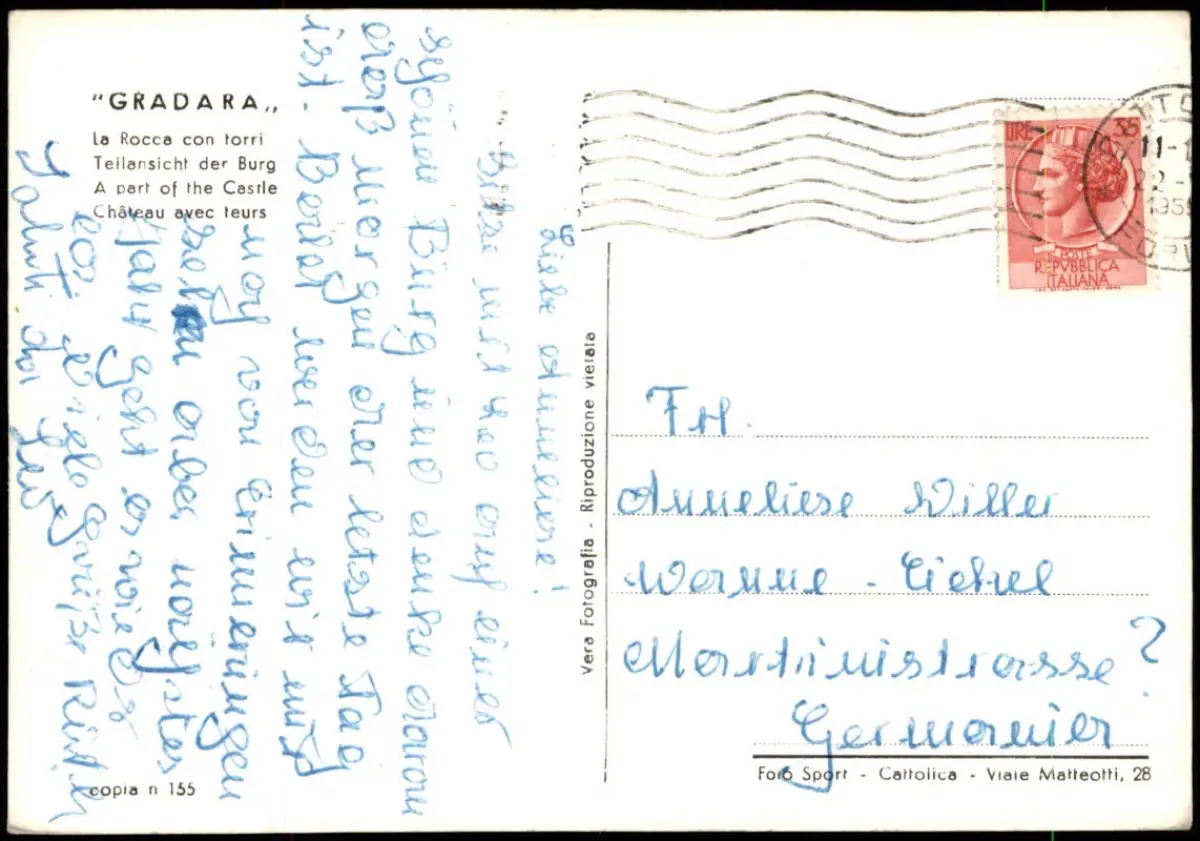 "GRADARA„
La Rocca con torri
Teilansicht der Burg
A part of the Castle
Château avec teurs
Liebe Anneliese!
Bitze auf einer
schönen Burg und denke daran
daß morgen der letzte Tag
ist. Bald werden wir nur
noch von Erinnerungen
aber nächstes
Jahr geht es wieder
los. Viele Grüße
copia n 155
Vera Fotografia - Riproduzione vietata
LIRE 35
POSTE
REPVBBLICA
ITALIANA
11-1
22
195
FORV
Frl.
Anneliese Willer
Wanne - Eickel
Martinistrasse?
Germanier
Foto Sport - Cattolica - Viale Matteotti, 28